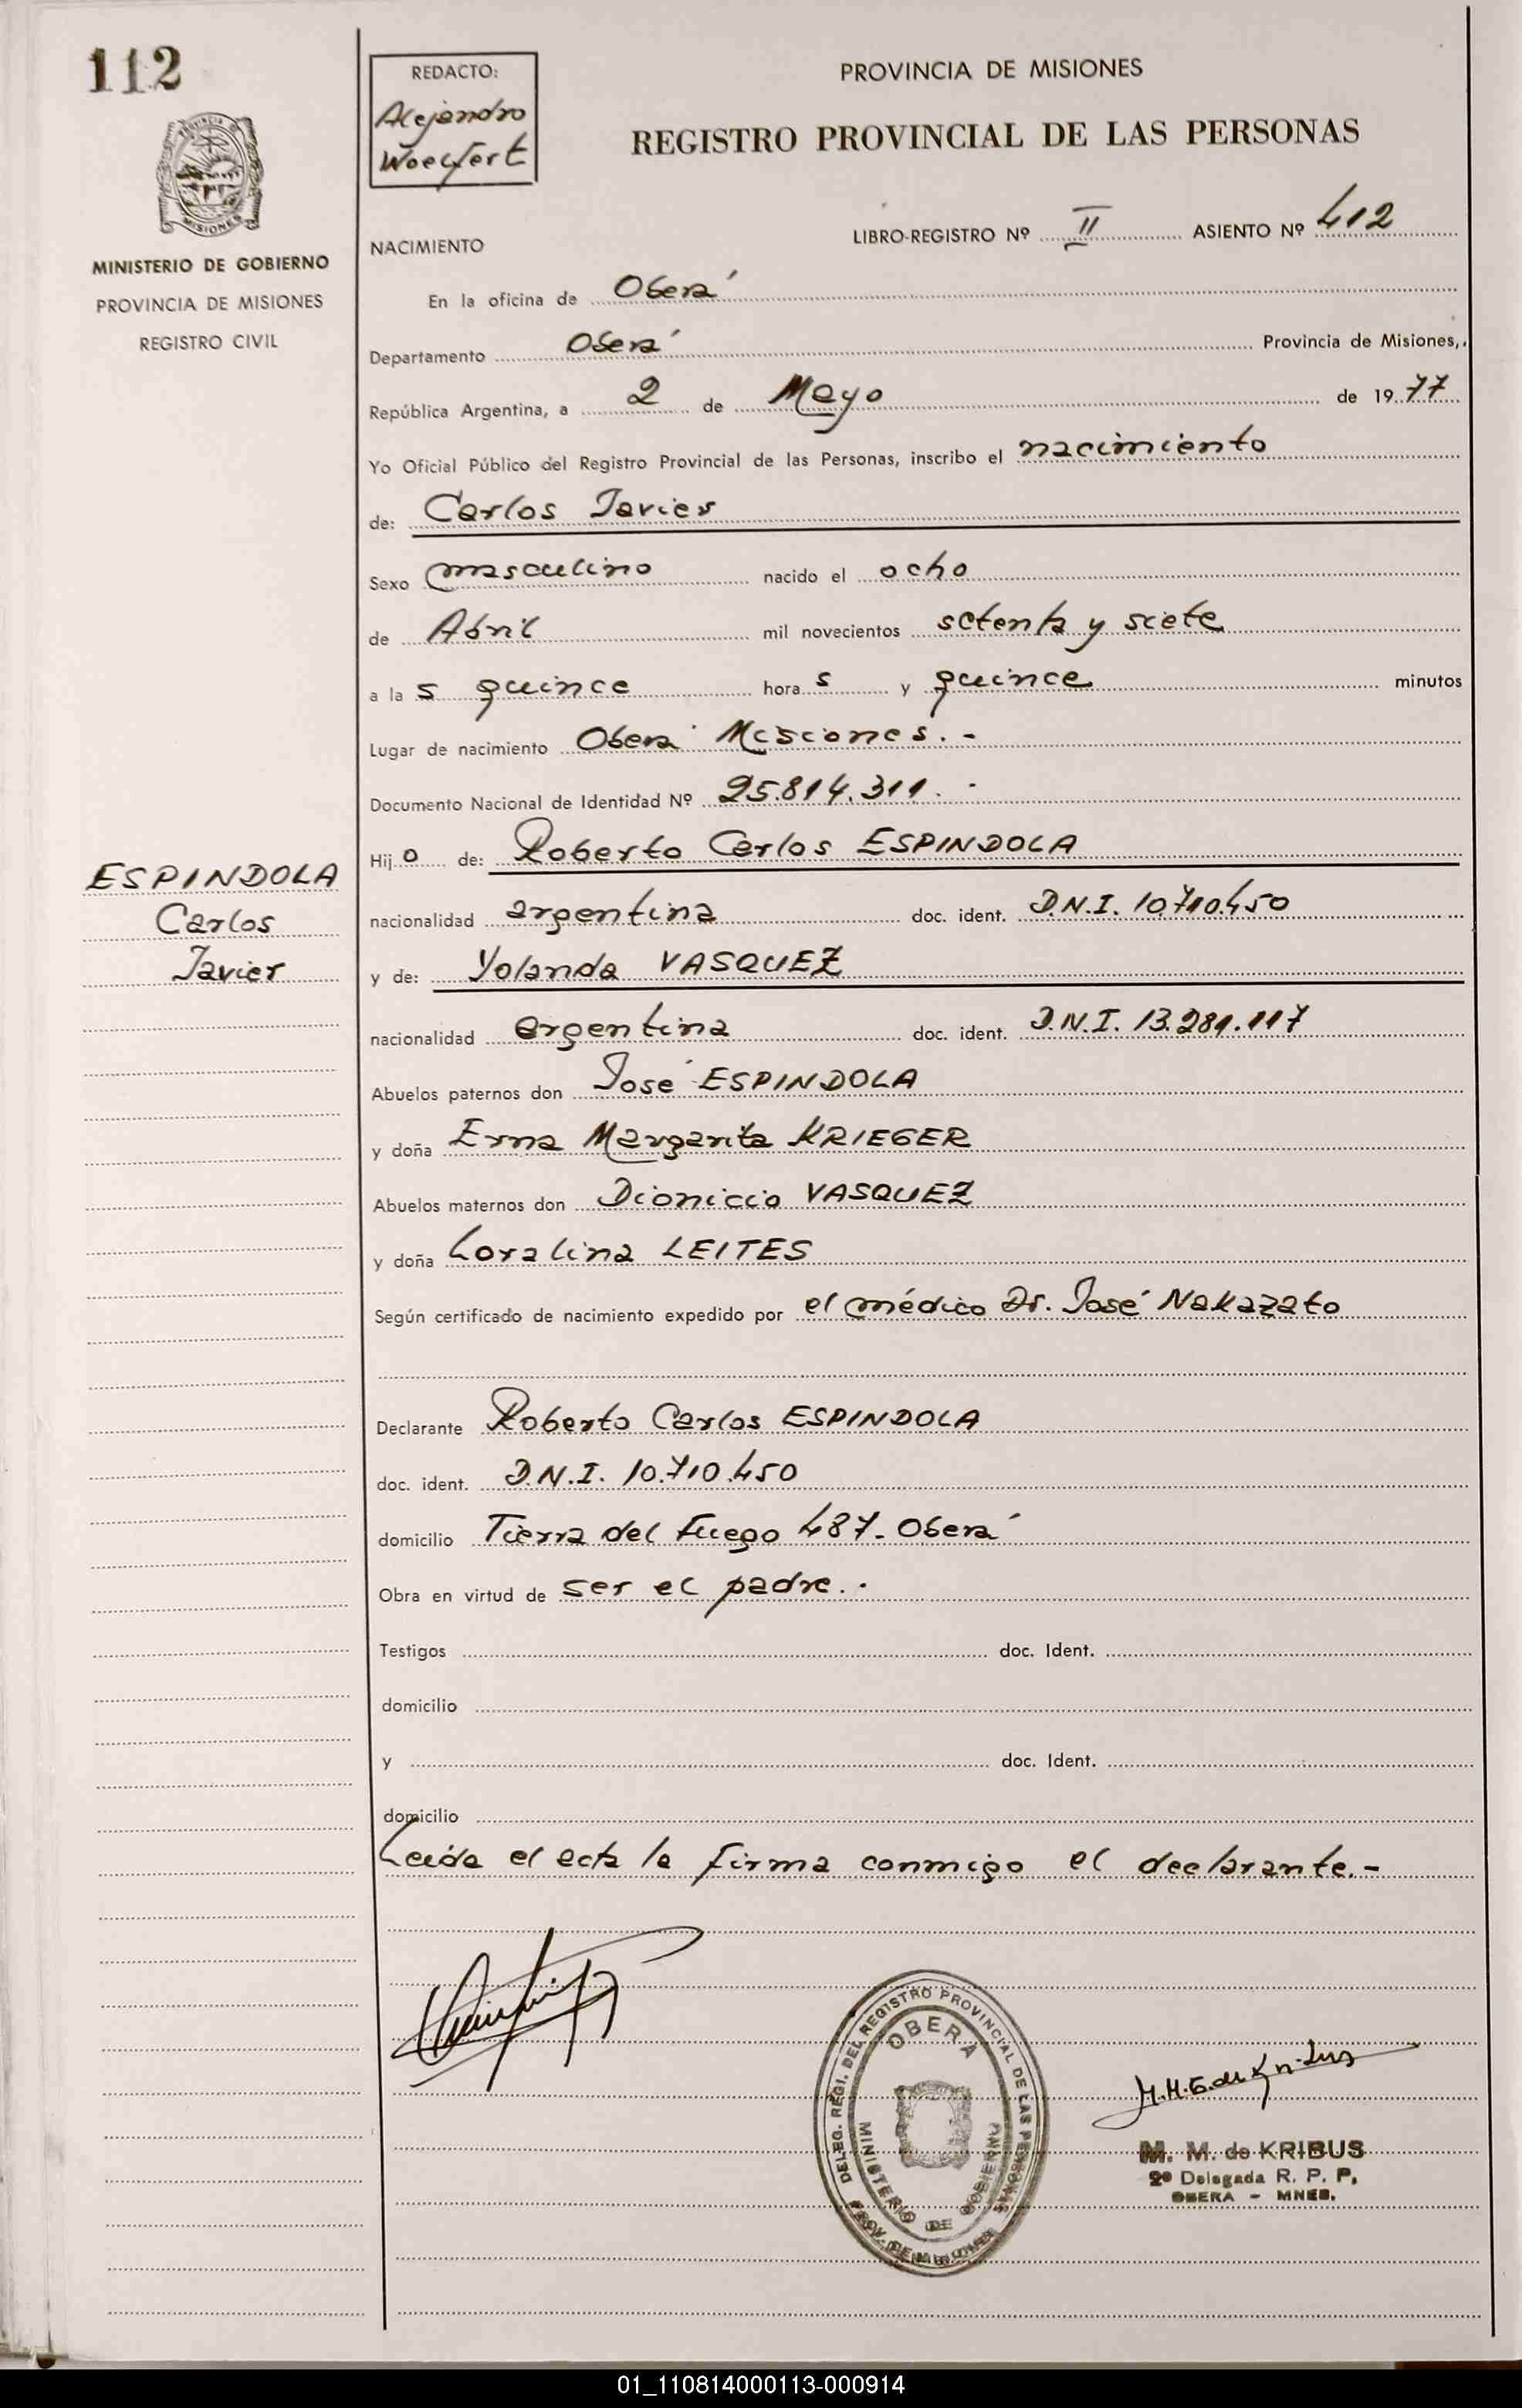 112
REDACTO:
Alejandro
Woelfert
PROVINCIA DE MISIONES
REGISTRO PROVINCIAL DE LAS PERSONAS
PROVINCIA DE
MISIONES
MINISTERIO DE GOBIERNO
PROVINCIA DE MISIONES
REGISTRO CIVIL
NACIMIENTO
LIBRO-REGISTRO Nº II ASIENTO Nº 412
En la oficina de Oberá
Departamento Oberá Provincia de Misiones,
República Argentina, a 2 de Mayo de 1977
Yo Oficial Público del Registro Provincial de las Personas, inscribo el nacimiento
de: Carlos Javier
Sexo masculino nacido el ocho
de Abril mil novecientos setenta y siete
a las quince horas y quince minutos
Lugar de nacimiento Oberá Misiones.-
Documento Nacional de Identidad Nº 25.814.311.-
Hijo de: Roberto Carlos ESPINDOLA
ESPINDOLA
Carlos
Javier
nacionalidad argentina doc. ident. D.N.I. 10.710.450
y de: Yolanda VASQUEZ
nacionalidad argentina doc. ident. D.N.I. 13.281.117
Abuelos paternos don José ESPINDOLA
y doña Erna Margarita KRIEGER
Abuelos maternos don Dionicio VASQUEZ
y doña Loralina LEITES
Según certificado de nacimiento expedido por el médico Dr. José Nakazato
Declarante Roberto Carlos ESPINDOLA
doc. ident. D.N.I. 10.710.450
domicilio Tierra del Fuego 487-Oberá
Obra en virtud de ser el padre.-
Testigos doc. Ident.
domicilio
y doc. Ident.
domicilio
Leída el acta la firma conmigo el declarante.-
DELEG. REGI. DEL REGISTRO PROVINCIAL DE LAS PERSONAS
OBERA
MINISTERIO DE GOBIERNO
PROV. DE MISIONES
M. M. de KRIBUS
2º Delegada R. P. P.
OBERA - MNES.
01_110814000113-000914